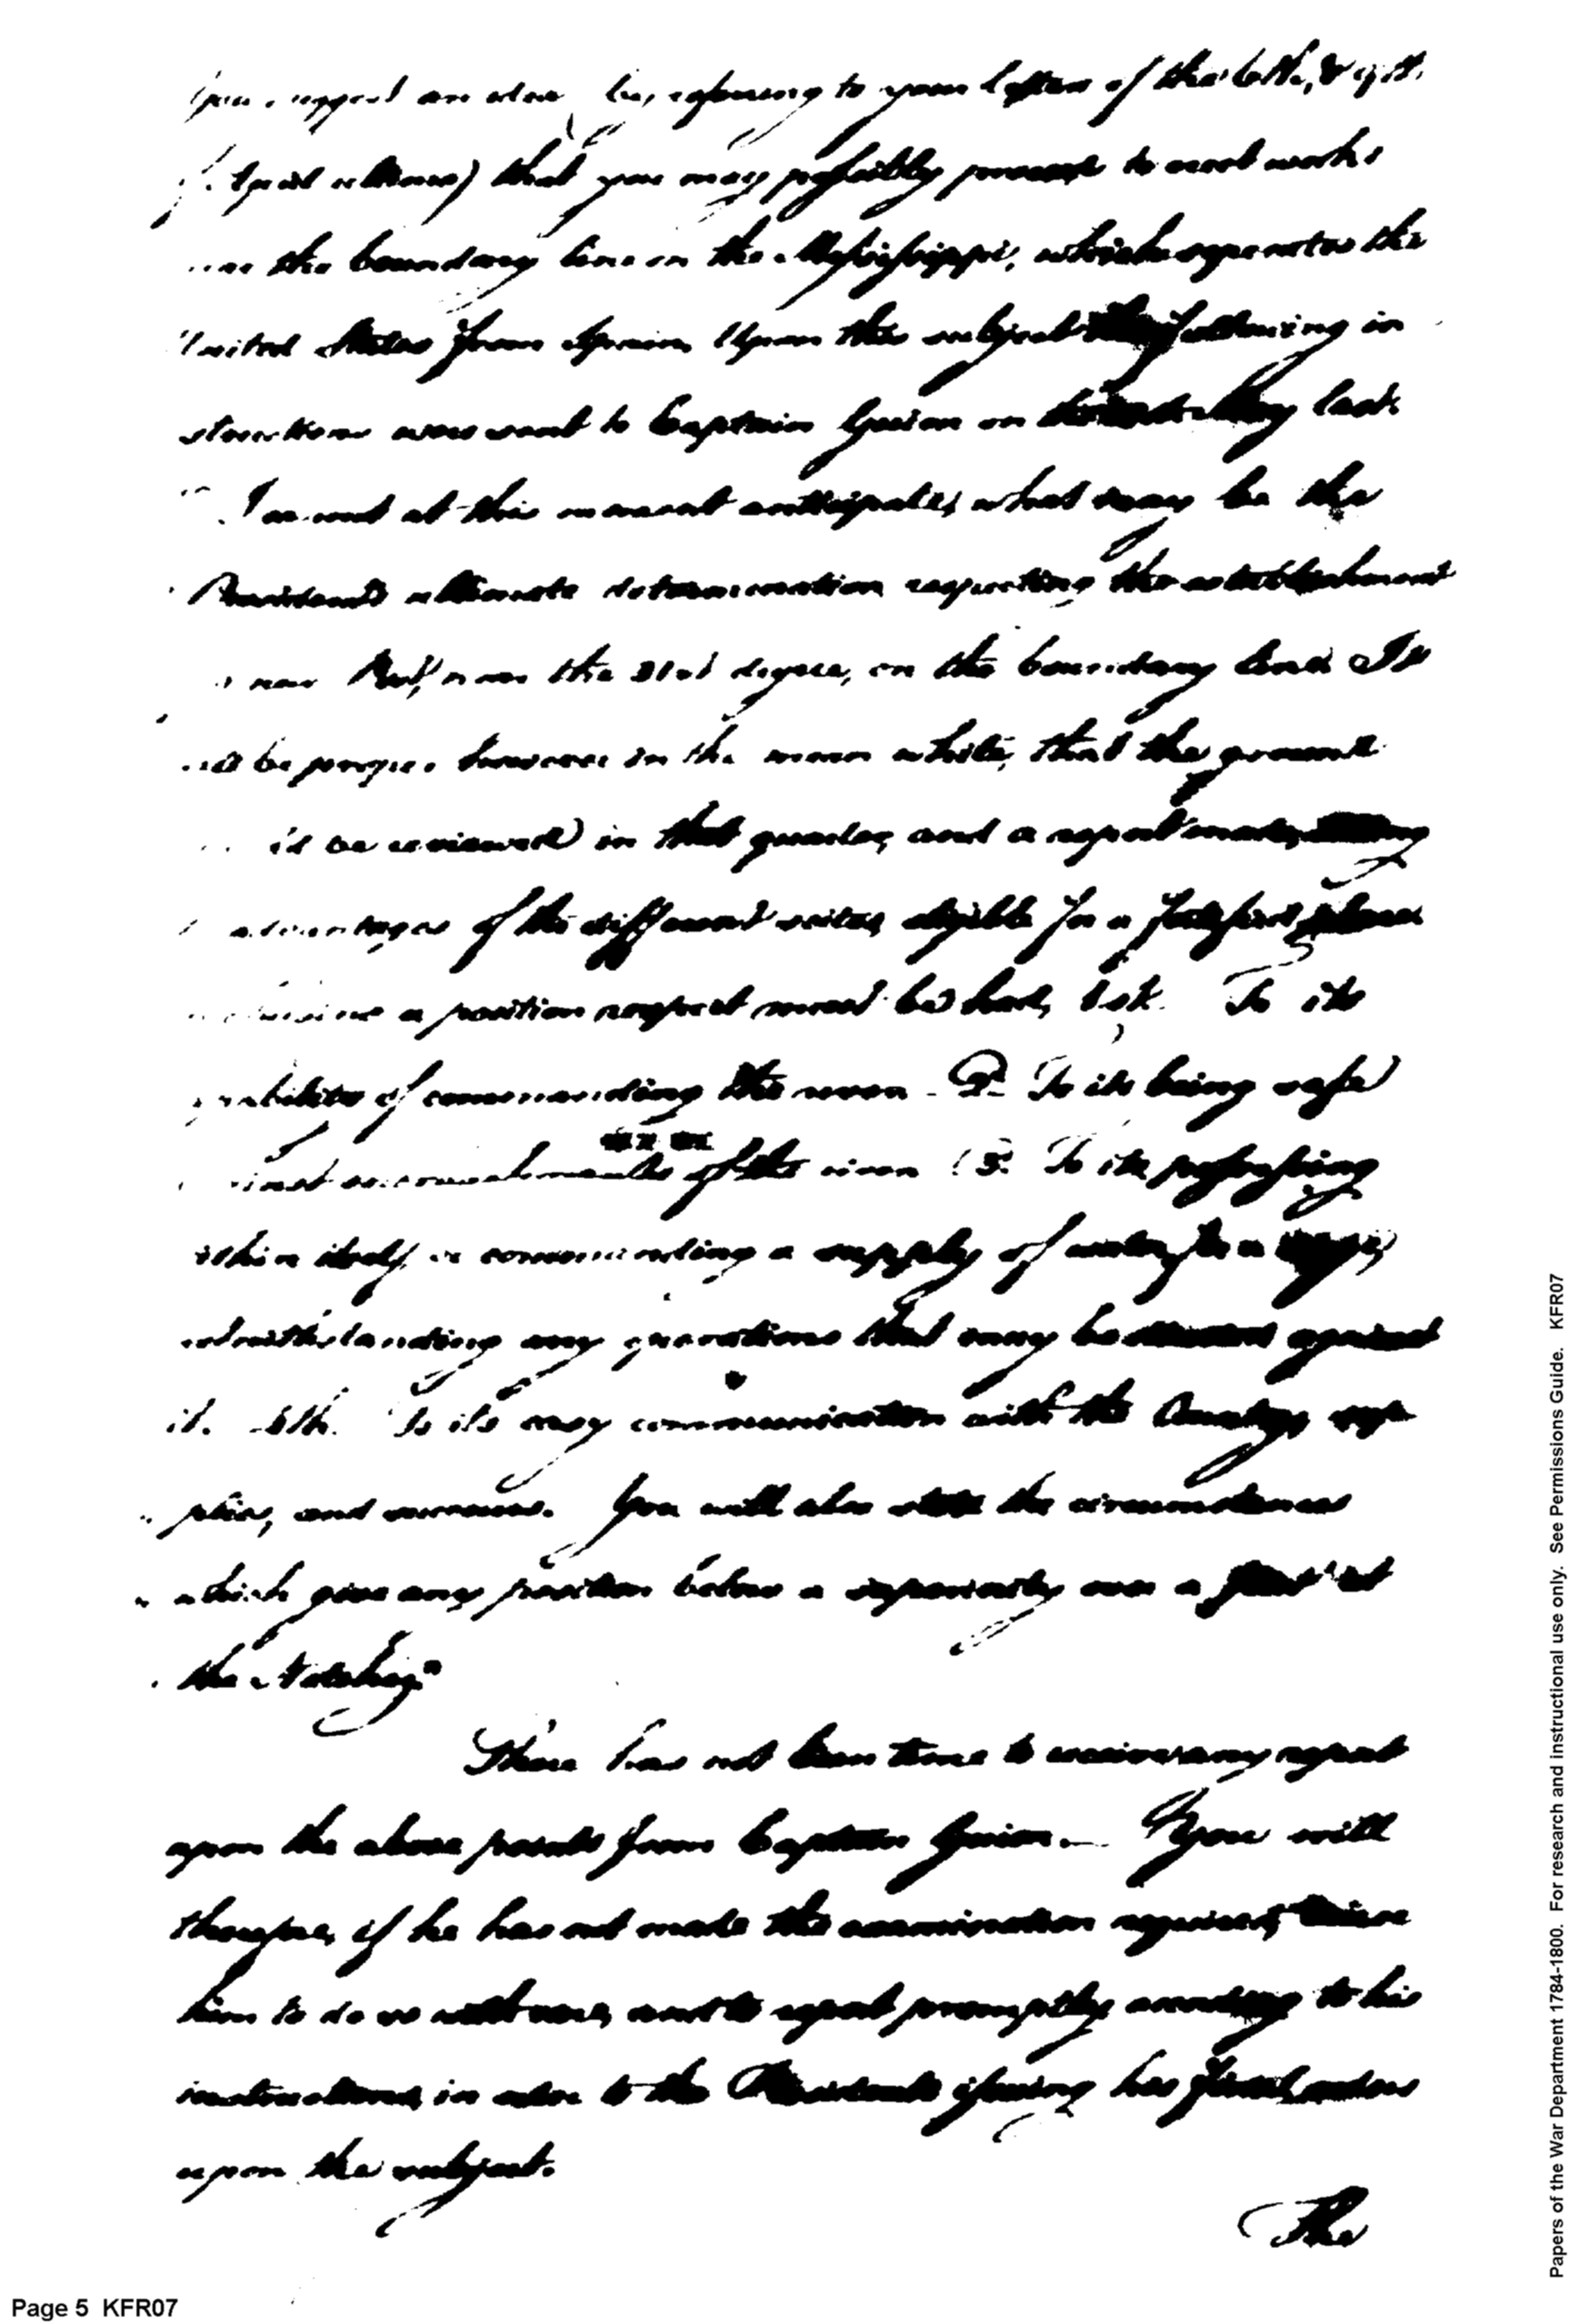 you suggest an idea, by referring to your letters of the 6th, & 9th.
that you may possibly proceed to erect works
the boundary line on the Mississippi, which separates the
United States from Spain Upon this subject the following in
structions were sent to Captain Guion on last.
I cannot at this moment anticipate, what may be the
Presidents ultimate determination respecting the establishment
new Post, near the 31st degree, on the boundary line. It
will be proper however in the mean while, that the ground
be reviewed in that quarter, and a report made,
advantages of the different scites, eligible for a fortified place
a position respect must be had, 1st. To its
of commanding the river. 2. To its being safe
encroachments of the river 3. To its possessing
within itself, or commanding a supply of water for a
notwithstanding any operations that may be against
it. 4th. To its easy communication with the Country, sup
plies, and succours. You will also state the circumstances
which give any position below a superiority over a at
the Natchez"
There has not been time to receive any report
upon the above points from Captain Guion.— You will
therefore, if he has not made the examination required, direct
him to do so without, and to report promptly according to his
instructions, in order to the Presidents issuing his final orders
upon the subject.
The
Page 5 KFR07
Papers of the War Department 1784-1800. For research and instructional use only. See Permissions Guide. KFR07